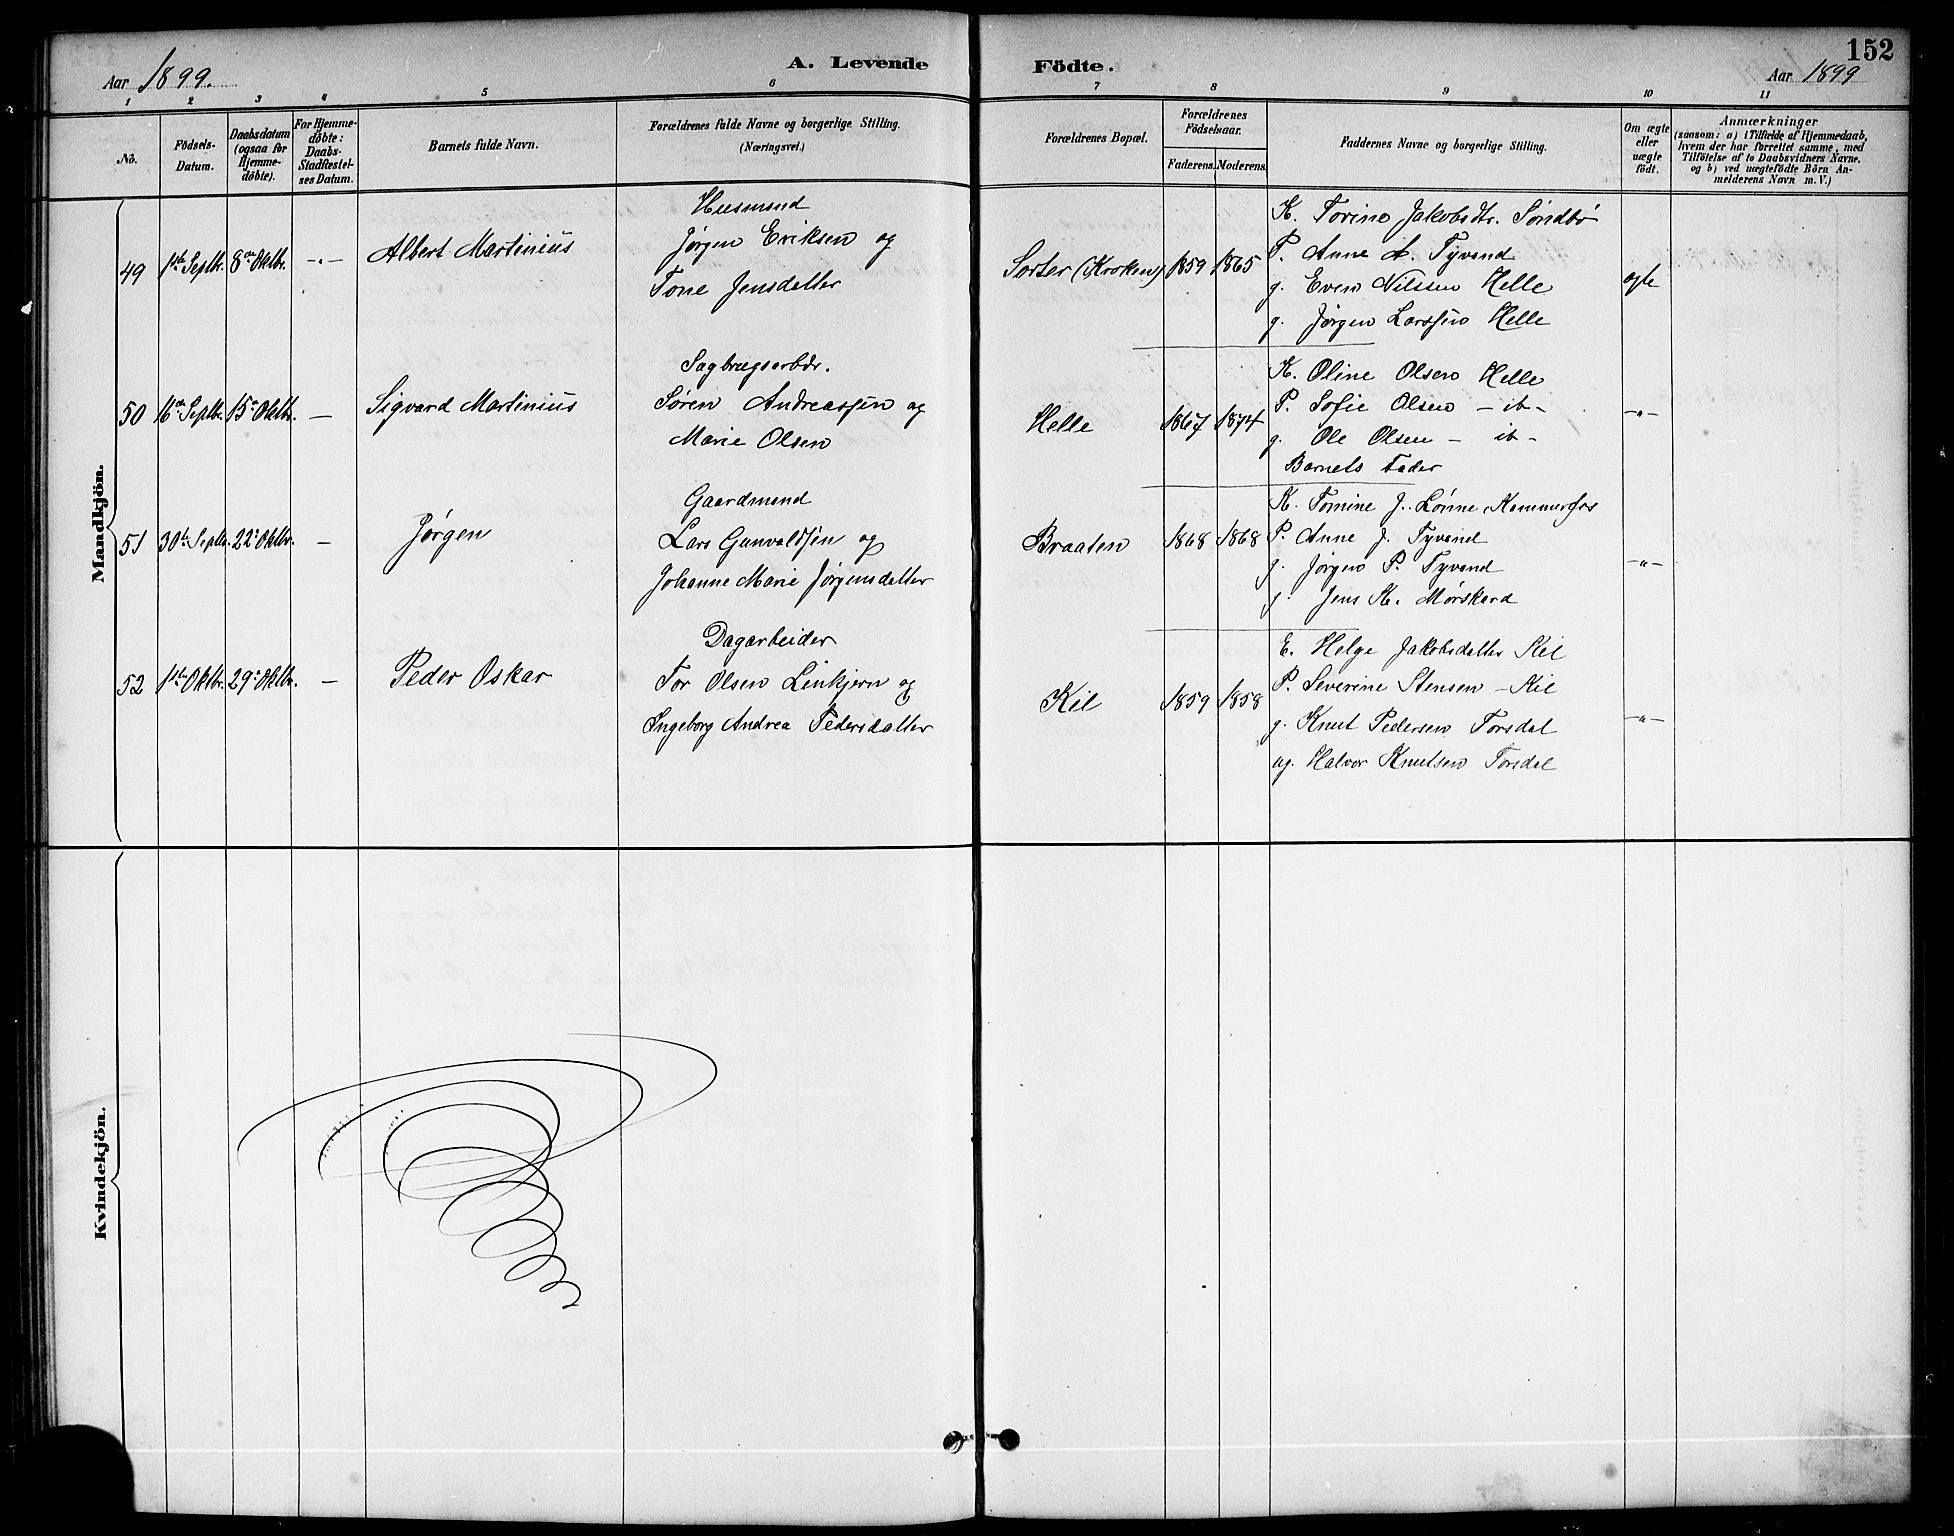 Aar 1899.
A. Levende
Födte.
152
Aar 1899
1 2 3 4 5 6 7 8 9 10 11
No.
Födsels-
Datum.
Daabsdatum
(ogsaa for
Hjemme-
döbte).
For Hjemme-
döbte:
Daabs-
Stadfæstel-
ses Datum.
Barnets fulde Navn.
Forældrenes fulde Navne og borgerlige Stilling.
(Næringsvei.)
Forældrenes Bopæl.
Forældrenes
Födselsaar.
Faderens. Moderens.
Faddernes Navne og borgerlige Stilling.
Om ægte
eller
uægte
födt.
Anmærkninger
(saasom: a) i Tilfælde af Hjemmedaab,
hvem der har forrettet samme, med
Tilföielse af to Daabsvidners Navne.
og b) ved uægtefödte Börn An-
melderens Navn m.V.)
Mandkjön.
49
1ste Septbr.
8de Oktbr.
-"-
Albert Martinius
Husmand
Jørgen Eriksen og
Tone Jensdatter
Sorter (Kroken)
1859
1865
K. Torine Jakobsdtr. Søndbø
P. Anne A. Tyvand
g. Even Nilssen Helle
g. Jørgen Larssen Helle
ægte
50
16de Septbr.
15de Oktbr.
—
Sigvard Martinius
Sagbrugsarbdr.
Søren Andreassen og
Marie Olsen
Helle
1867
1874
K. Oline Olsen Helle
P. Sofie Olsen - ib -
g. Ole Olsen - ib -
Barnets Fader
-"-
51
30te Septbr.
22de Oktbr.
—
Jørgen
Gaardmand
Lars Gunvaldsen og
Johanne Marie Jørgensdatter
Braaten
1868
1868
K. Tomine J. Lønne, Kammerfos
P. Anne J. Tyvand
g. Jørgen P. Tyvand
g. Jens K. Mørskard
-"-
52
1ste Oktbr.
29de Oktbr.
—
Peder Oskar
Dagarbeider
Tor Olsen Linkjern og
Ingeborg Andrea Pedersdatter
Kil
1859
1858
E. Helge Jakobsdatter Kil
P. Severine Stensen - Kil
g. Knut Pedersen Torsdal
ug. Halvor Knutsen Torsdal
-"-
Kvindekjön.